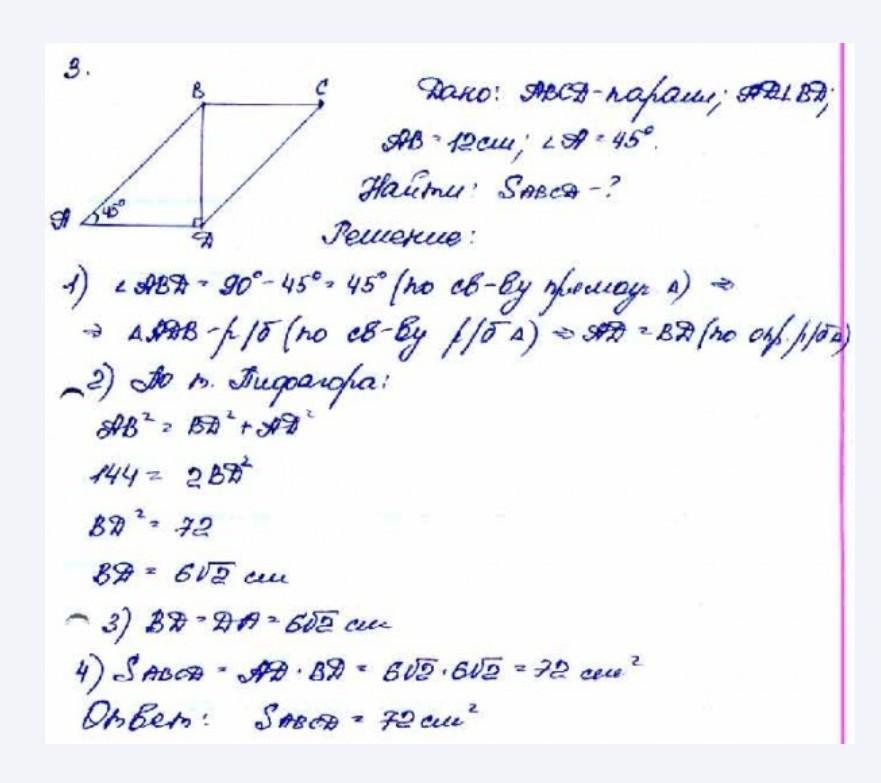 3.
B C
A 45° D
Дано: ABCD-паралл; AD⊥BD;
AB = 12см; ∠A = 45°.
Найти: SABCD - ?
Решение:
1) ∠ABD = 90° - 45° = 45° (по св-ву прямоуг Δ) ⇒
⇒ ΔADB - р/б (по св-ву р/б Δ) ⇒ AD = BD (по опр. р/б Δ)
2) По т. Пифагора:
AB² = BD² + AD²
144 = 2BD²
BD² = 72
BD = 6√2 см
3) BD = DA = 6√2 см
4) SABCD = AD · BD = 6√2 · 6√2 = 72 см²
Ответ: SABCD = 72 см²